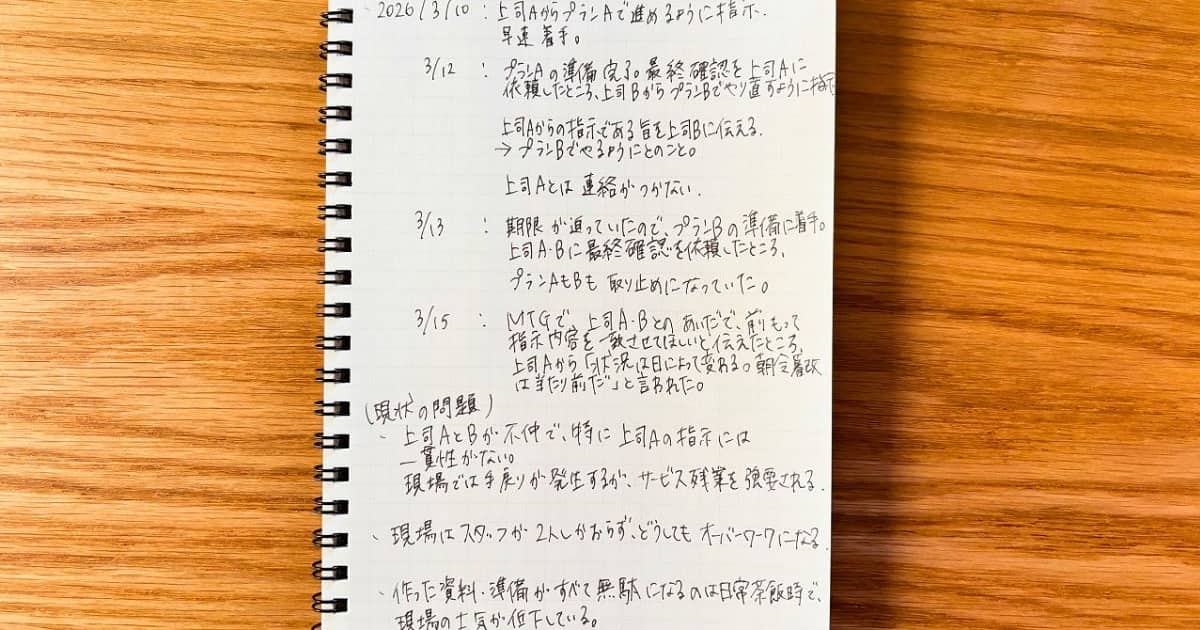 ・2026/3/10 : 上司AからプランAで進めるように指示.
早速着手。
3/12 : プランAの準備完了。最終確認を上司Aに
依頼したところ、上司BからプランBでやり直すように指示
上司Aからの指示である旨を上司Bに伝える.
→プランBでやるようにとのこと。
上司Aとは連絡がつかない.
3/13 : 期限が迫っていたので、プランBの準備に着手。
上司A・Bに最終確認を依頼したところ、
プランAもBも取り止めになっていた。
3/15 : MTGで上司A・Bとのあいだで、前もって
指示内容を一致させてほしいと伝えたところ、
上司Aから「状況は日によって変わる。朝令暮改
は当たり前だ」と言われた。
(現状の問題)
・上司AとBが不仲で、特に上司Aの指示には
一貫性がない。
現場では手戻りが発生するが、サービス残業を強要される.
・現場はスタッフが2人しかおらず、どうしてもオーバーワークになる.
・作った資料・準備がすべて無駄になるのは日常茶飯時で、
現場の士気が低下している。